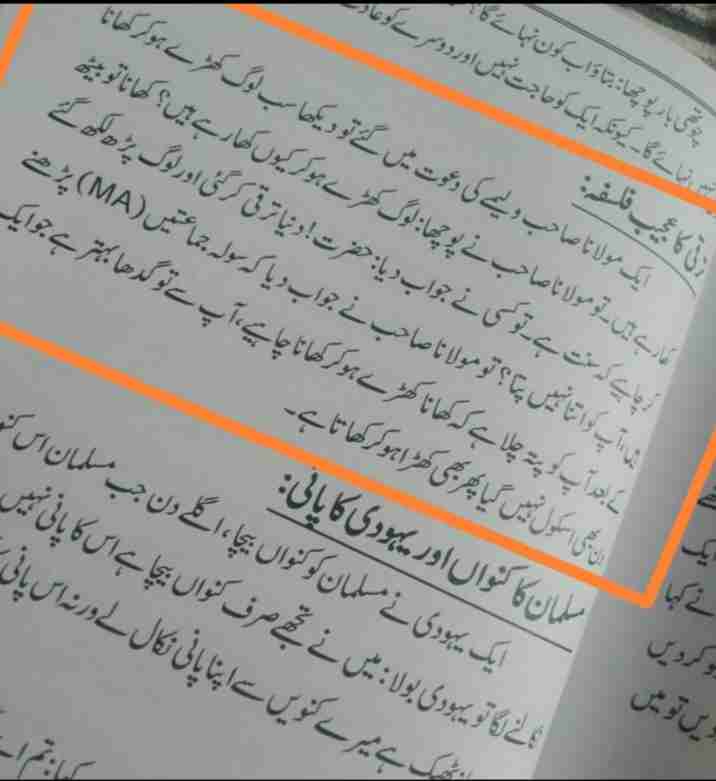 چوتھی بار پوچھا: بتاؤ اب کون نہائے گا؟
نہیں نہائے گا۔ کیونکہ ایک کو حاجت نہیں اور دوسرے کو عادت
ترقی کا عجیب فلسفہ:
ایک مولانا صاحب ولیمے کی دعوت میں گئے تو دیکھا سب لوگ کھڑے ہو کر کھانا
کھا رہے ہیں۔ تو مولانا صاحب نے پوچھا: لوگ کھڑے ہو کر کیوں کھا رہے ہیں؟ کھانا تو بیٹھ
کر چاہیے کہ سنت ہے۔ تو کسی نے جواب دیا: حضرت! دنیا ترقی کر گئی اور لوگ پڑھ لکھ گئے
ہیں، آپ کو اتنا نہیں پتا؟ تو مولانا صاحب نے جواب دیا کہ سولہ جماعتیں (MA) پڑھنے
کے بعد آپ کو پتہ چلا ہے کہ کھانا کھڑے ہو کر کھانا چاہیے، آپ سے تو گدھا بہتر ہے جو ایک
دن بھی اسکول نہیں گیا پھر بھی کھڑا ہو کر کھاتا ہے۔
مسلمان کا کنواں اور یہودی کا پانی:
ایک یہودی نے مسلمان کو کنواں بیچا، اگلے دن جب مسلمان اس
نکالنے لگا تو یہودی بولا: میں نے تجھے صرف کنواں بیچا ہے اس کا پانی نہیں
ٹھیک ہے میرے کنویں سے اپنا پانی نکال لے ورنہ اس پانی
کہا: تم
ایک
نے کہا
کر دیں
دیں تو میں